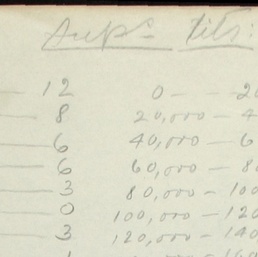 12 0 — 20
8 20,000 — 4
6 40,000 — 6
6 60,000 — 8
3 80,000 — 100
0 100,000 — 120
3 120,000 — 140